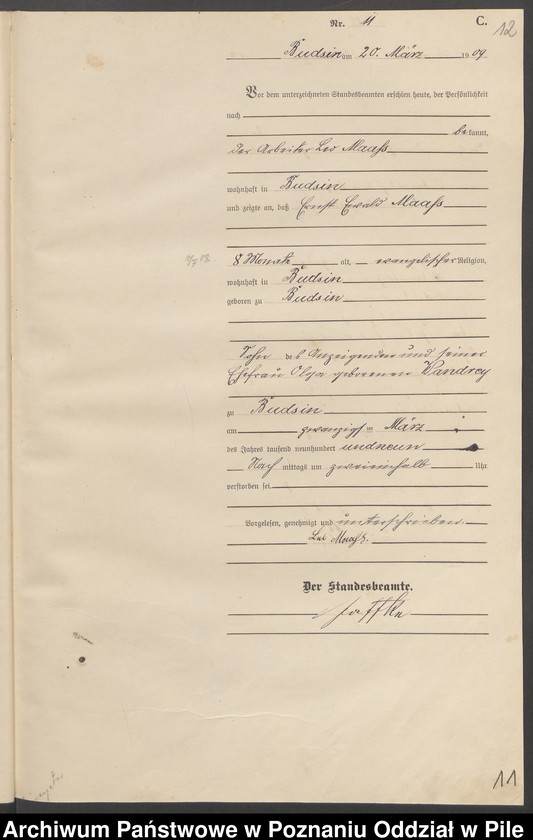 Nr. 11 C. 12
Budsin am 20. März 1909
Vor dem unterzeichneten Standesbeamten erschien heute, der Persönlichkeit
nach
bekannt,
der Arbeiter Leo Maaß
wohnhaft in Budsin
und zeigte an, daß Ernst Ewald Maaß
8 Monate alt, evangelischer Religion,
wohnhaft in Budsin
geboren zu Budsin
Sohn des Anzeigenden und seiner
Ehefrau Olga geborenen Wandrey
zu Budsin
am zwanzigsten März
des Jahres tausend neunhundert und neun
Nach mittags um zweieinhalb Uhr
verstorben sei.
Vorgelesen, genehmigt und unterschrieben.
Leo Maaß.
Der Standesbeamte.
11
Archiwum Państwowe w Poznaniu Oddział w Pile